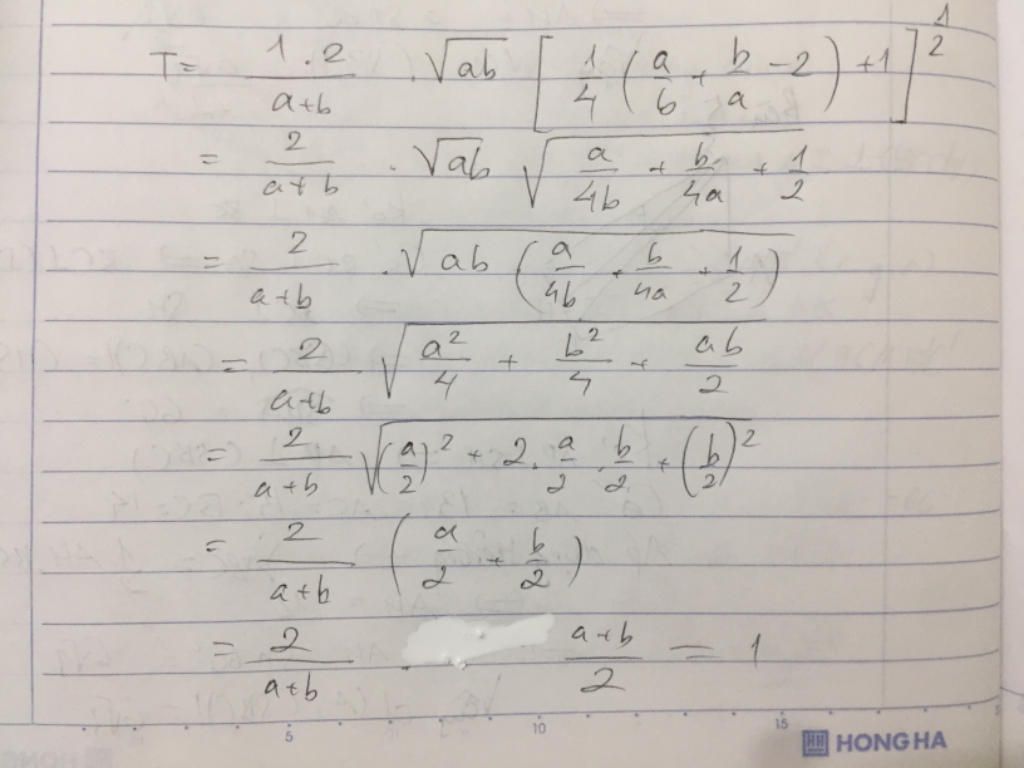 T = \frac{1.2}{a+b} . \sqrt{ab} \left[ \frac{1}{4} \left( \frac{a}{b} + \frac{b}{a} - 2 \right) + 1 \right]^{\frac{1}{2}}
= \frac{2}{a+b} . \sqrt{ab} \sqrt{\frac{a}{4b} + \frac{b}{4a} + \frac{1}{2}}
= \frac{2}{a+b} . \sqrt{ab \left( \frac{a}{4b} + \frac{b}{4a} + \frac{1}{2} \right)}
= \frac{2}{a+b} \sqrt{\frac{a^2}{4} + \frac{b^2}{4} + \frac{ab}{2}}
= \frac{2}{a+b} \sqrt{\left(\frac{a}{2}\right)^2 + 2 . \frac{a}{2} . \frac{b}{2} + \left(\frac{b}{2}\right)^2}
= \frac{2}{a+b} \left( \frac{a}{2} + \frac{b}{2} \right)
= \frac{2}{a+b} . \frac{a+b}{2} = 1
5 10 15
HONG HA